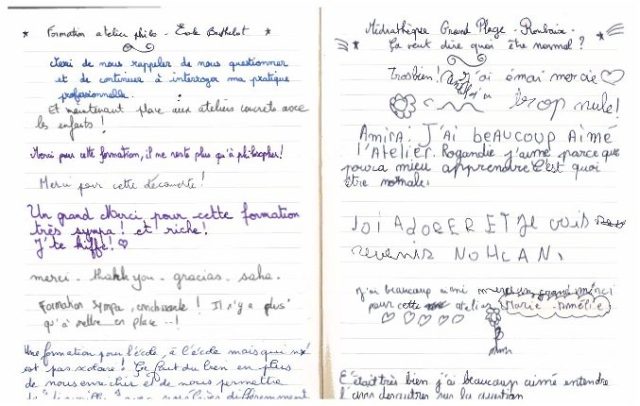 Formation atelier philo - École Berthelot
Merci de nous rappeler de nous questionner
et de continuer à interroger ma pratique
professionnelle.
Et maintenant place aux ateliers concrets avec
les enfants !
Merci pour cette formation, il ne reste plus qu'à philosopher !
Merci pour cette découverte !
Un grand Merci pour cette formation
très sympa ! et riche !
J'te kiffe !
merci - thank you - gracias - saha.
Formation sympa, enrichissante ! Il n'y a plus
qu'à mettre en place --!
Une formation pour l'école, à l'école mais qui
est pas scolaire ! Ça fait du bien en plus
de nous enrichir et de nous permettre
différemment
Médiathèque Grand Plage - Roubaix.
Ça veut dire quoi être normal ?
Trosbien ! j'ai émai mercie
trop nule !
Amira : J'ai beaucoup aimé
l'atelier. j'aime parce que
poura mieu apprendre C'est quoi
être normale.
JOI ADORER ET Je vais
revenir NOHLAN.
j'ai beaucoup aimé grand merci
pour cette atelier Marie-Amélie
C'était très bien j'ai beaucoup aimé entendre
l'avis des autres sur la question